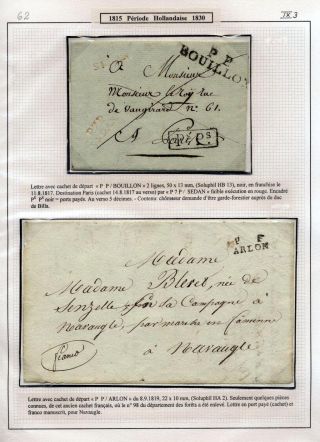 62
1815 Période Hollandaise 1830
IX.3
P P
BOUILLON
A Monsieur
Monsieur
rue
de Vaugirard n° 61.
A
Lettre avec cachet de départ « P P / BOUILLON » 2 lignes, 50 x 13 mm, (Soluphil HB 13), noir, en franchise le
11.8.1817. Destination Paris (cachet 14.8.1817 au verso) par « P 7 P / SEDAN » faible exécution en rouge. Encadré
P⁵ P⁵ noir = ports payés. Au verso 5 décimes. - Contenu: chômeur demande d'être garde-forestier auprès de duc
de Bills.
P P
ARLON
Madame
Madame née de
Senzelle La Campagne à
Navaugle, par marche en famenne
à Navaugle
franco
Lettre avec cachet de départ « P P / ARLON » du 8.9.1819, 22 x 10 mm, (Soluphil HA 2). Seulement quelques pièces
connues, de cet ancien cachet français, où le n° 98 du département des forêts a été enlevé. Lettre en port payé (cachet) et
franco manuscrit, pour Navaugle.